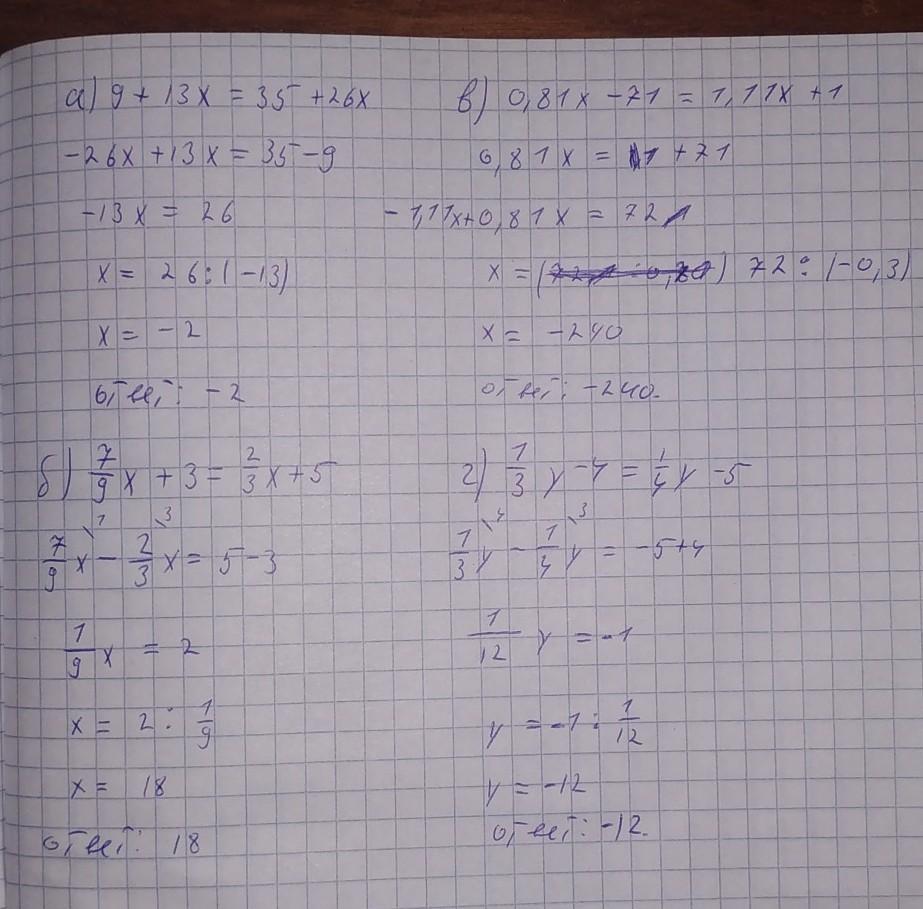 а) 9 + 13x = 35 + 26x
-26x + 13x = 35 - 9
-13x = 26
x = 26 : (-13)
x = -2
ответ: -2
в) 0,81x - 71 = 1,11x + 1
0,81x = 1 + 71
-1,11x + 0,81x = 72
x = 72 : (-0,3)
x = -240
ответ: -240.
б) 7/9 x + 3 = 2/3 x + 5
7/9 \1 x - 2/3 \3 x = 5 - 3
1/9 x = 2
x = 2 : 1/9
x = 18
ответ: 18
г) 1/3 y - 4 = 1/4 y - 5
1/3 \4 y - 1/4 \3 y = -5 + 4
1/12 y = -1
y = -1 : 1/12
y = -12
ответ: -12.